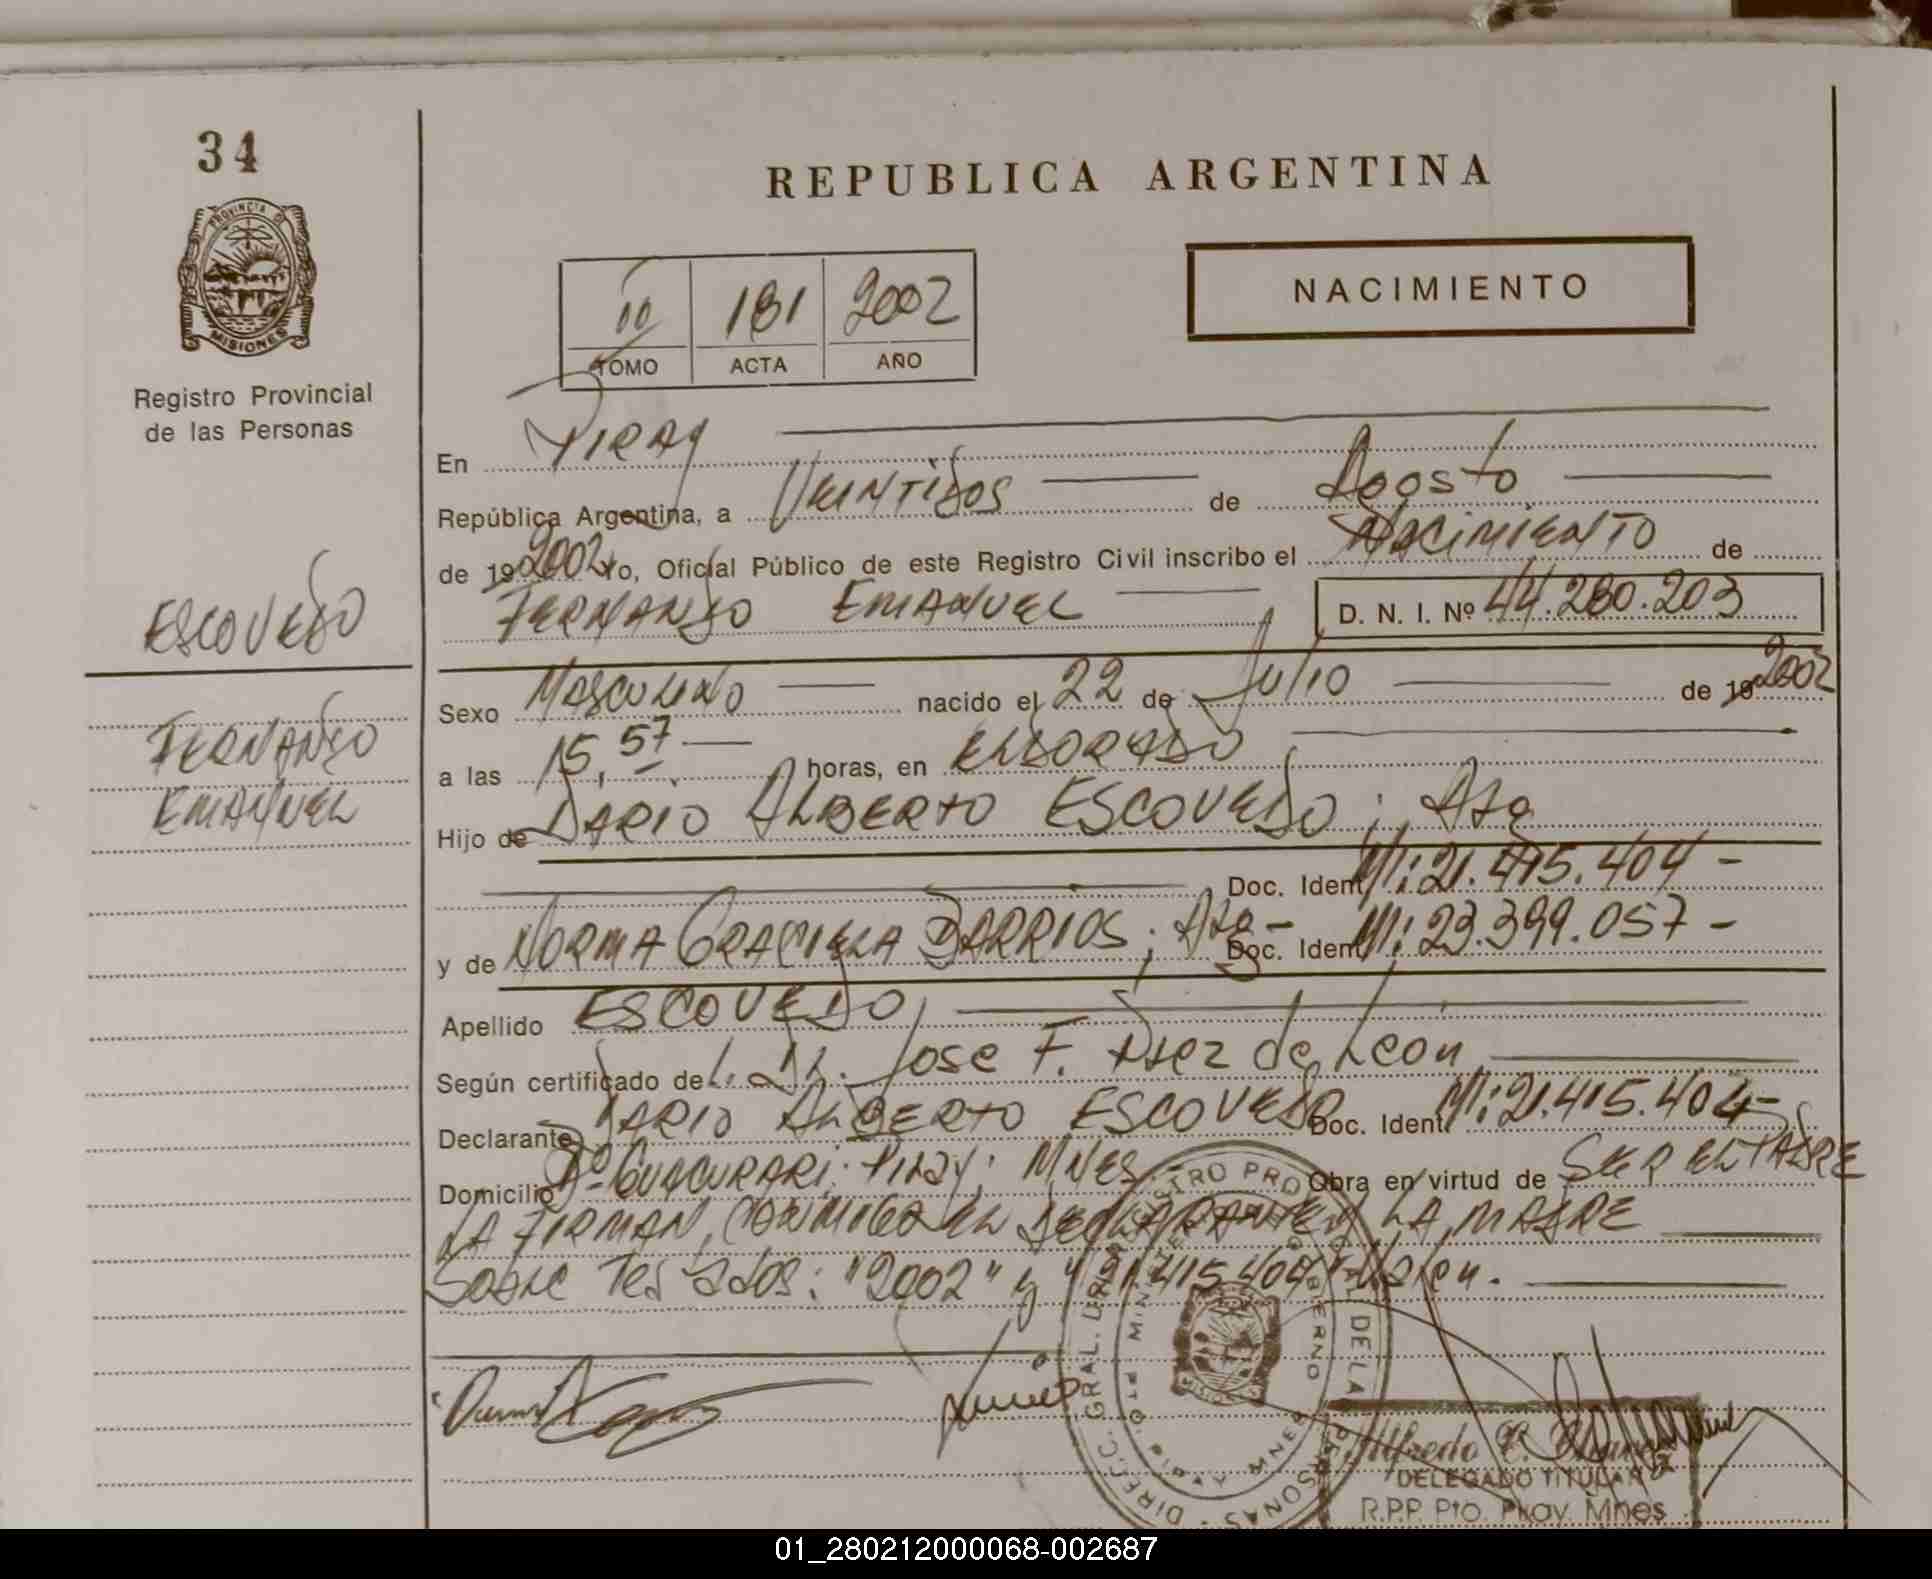 34
REPUBLICA ARGENTINA
PROVINCIA DE
MISIONES
Registro Provincial
de las Personas
II 181 2002
TOMO ACTA AÑO
NACIMIENTO
En PIRAY
República Argentina, a VEINTIDOS de Agosto
de 19 2002 Yo, Oficial Público de este Registro Civil inscribo el NACIMIENTO de
FERNANDO EMANUEL D. N. I. Nº 44.280.203
ESCOVEDO
FERNANDO
EMANUEL
Sexo MASCULINO nacido el 22 de Julio de 19 2002
a las 15,57 horas, en ELDORADO
Hijo de DARIO ALBERTO ESCOVEDO; Arg
Doc. Ident. M.I: 21.415.404-
y de NORMA GRACIELA BARRIOS; Arg- Doc. Ident. M.I: 23.399.057-
Apellido ESCOVEDO
Según certificado de: Dr. Jose F. Diez de León
Declarante DARIO ALBERTO ESCOVEDO Doc. Ident. M.I: 21.415.404-
Domicilio Bº GUACURARI; Piray; MNES Obra en virtud de SER EL PADRE
LA FIRMAN, CONMIGO EL DECLARANTE Y LA MADRE
Sobre Testados: "2002" y "21.415.404" Valen.
DIREC. GRAL. DE LA
Alfredo
DELEGADO TITULAR
R.P.P. Pto. Piray Mnes
01_280212000068-002687